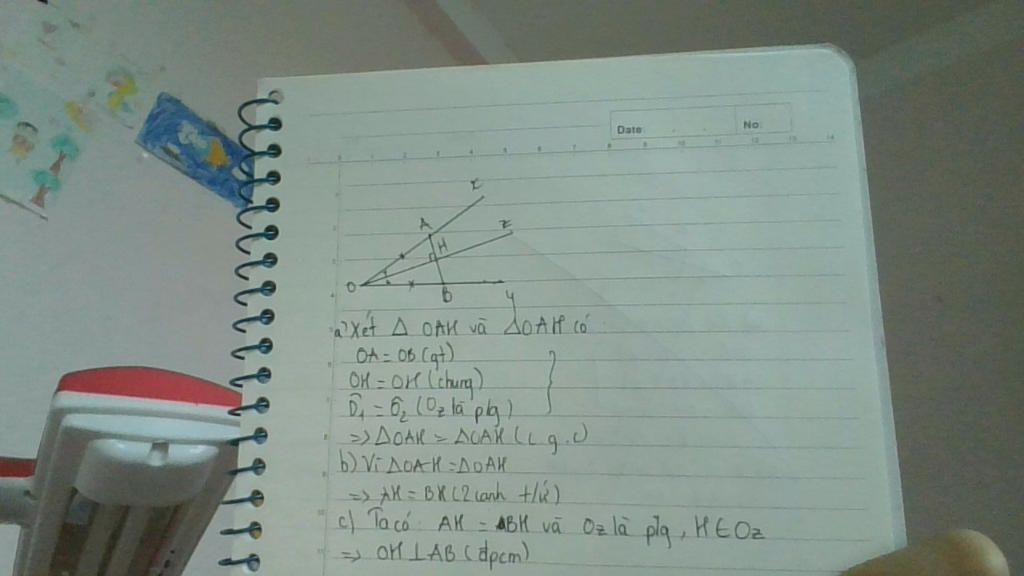 Date: No:
x
A
z
H
O
B
y
a) Xét Δ OAH và ΔOAH có
OA = OB (gt)
OH = OH (chung)
Ô1 = Ô2 (Oz là p/g)
=> ΔOAH = ΔOAH (c.g.c)
b) Vì ΔOAH = ΔOAH
=> AH = BH (2 cạnh t/ứ)
c) Ta có: AH = BH và Oz là p/g, H ∈ Oz
=> OH ⊥ AB (đpcm)